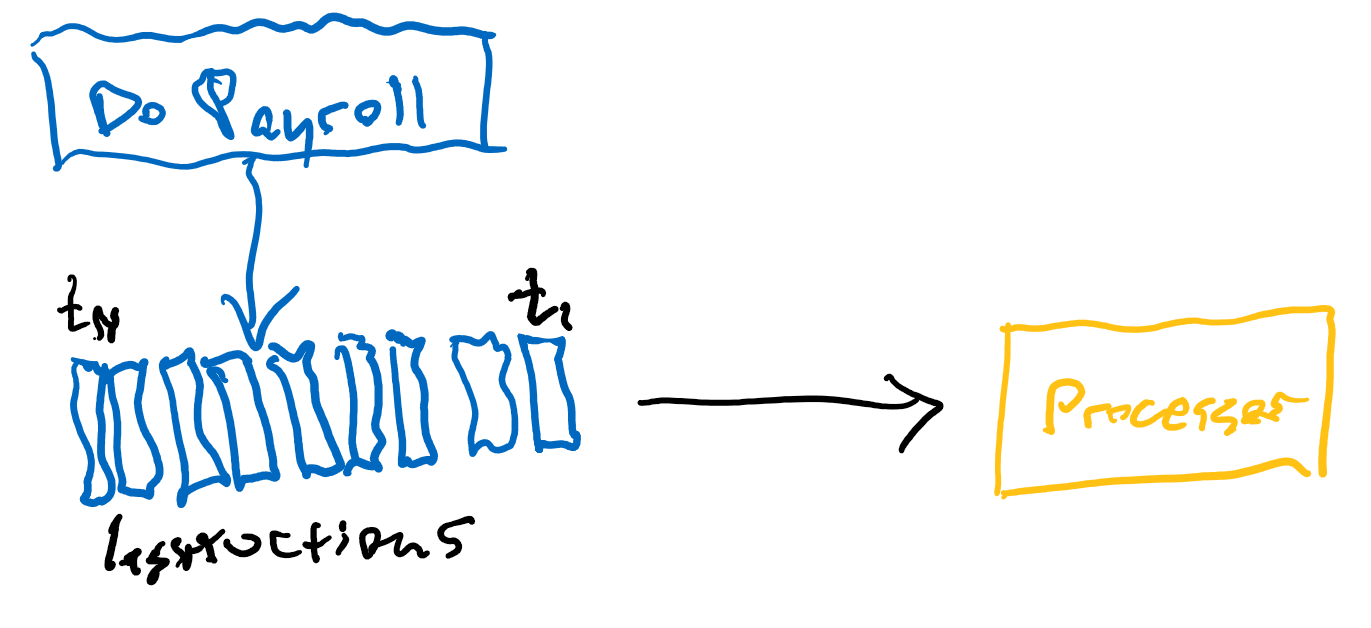 Do Payroll
tN t1
Instructions
Processor